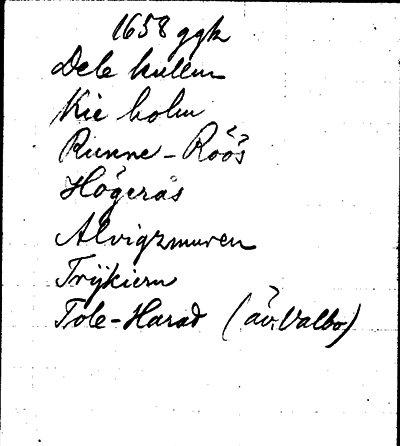 1658 ggk
Dele kullen
Kie holm
Runne-Röös
Högerås
Alvigzmuren
Trÿkiern
Tole-Harad (äv. Valbo)